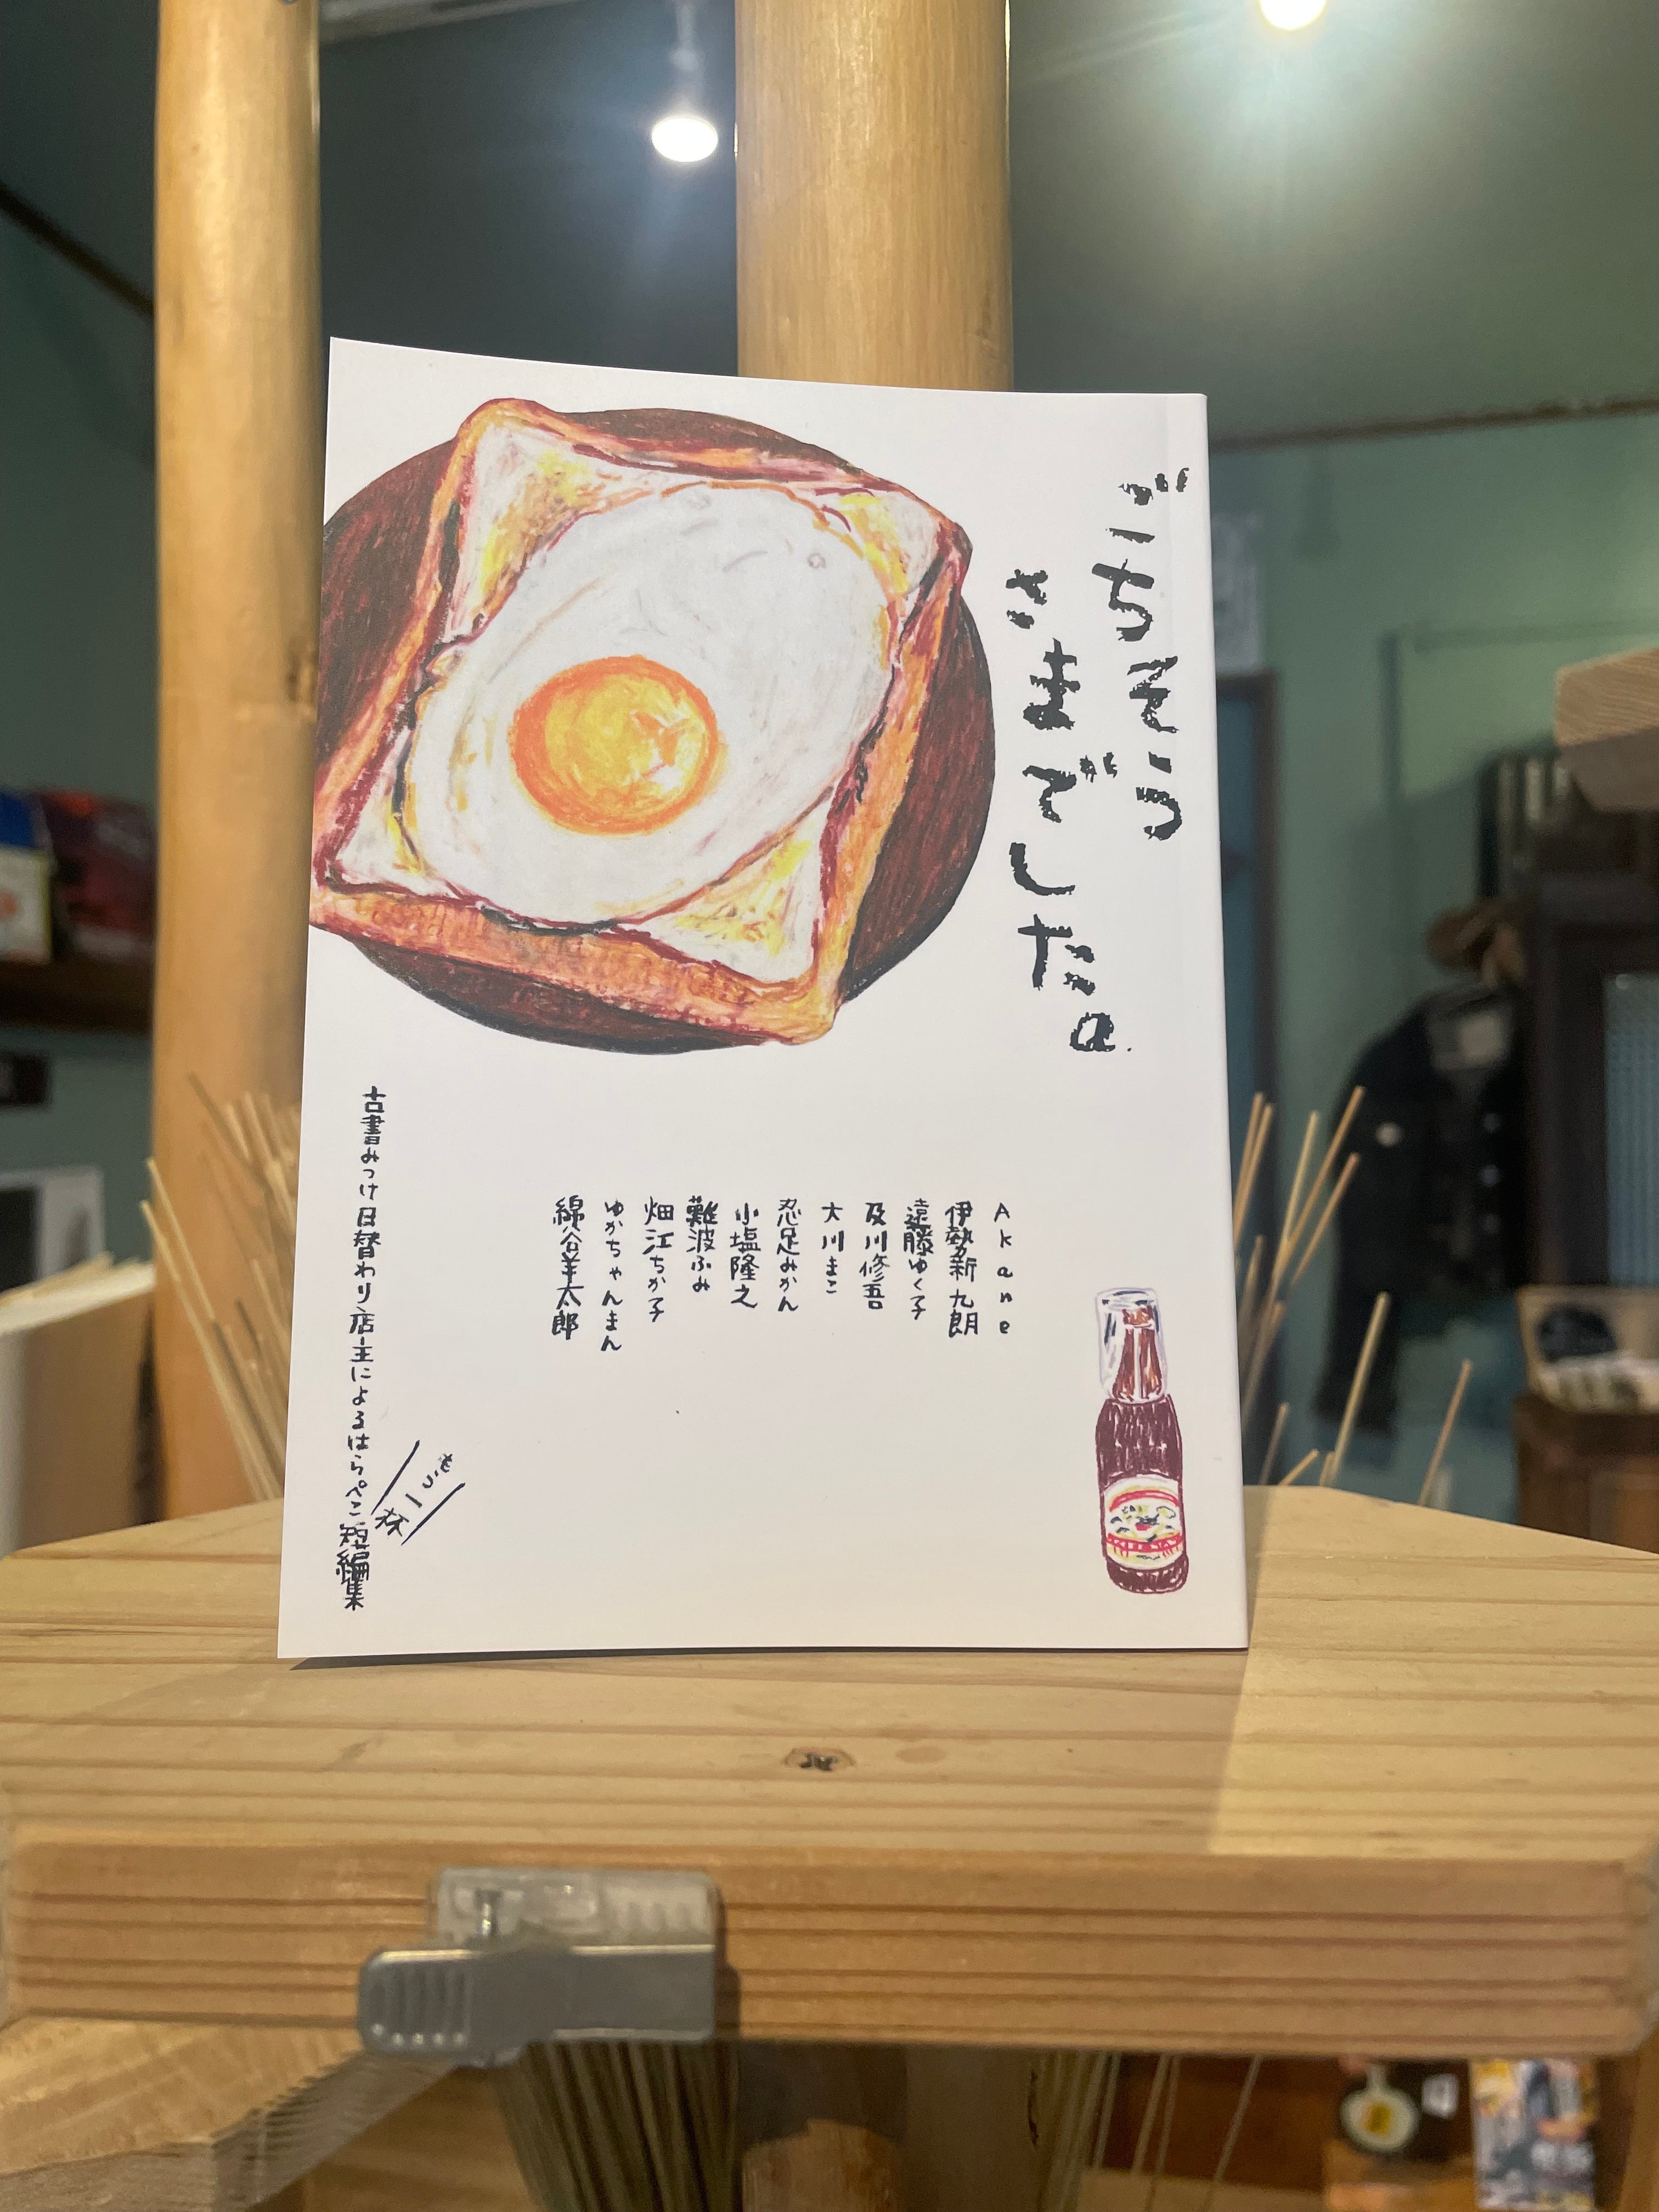 ごちそう
さまでしたa.
Akane
伊勢新九朗
遠藤ゆく子
及川修吾
大川まこ
忍足みかん
小塩隆之
難波ふみ
畑江ちか子
ゆかちゃんまん
綿谷羊太郎
もう一杯
古書みつけ日替わり店主によるはらぺこ短編集